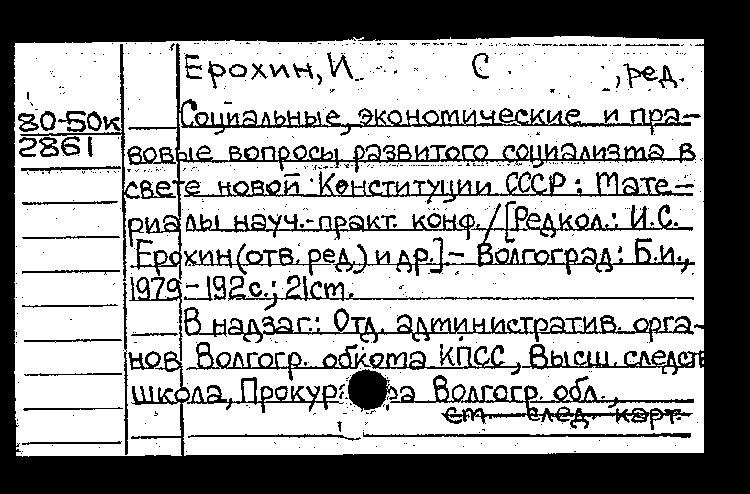 Ерохин, И С , ред.
80-50к
2861
Социальные, экономические и пра-
вовые вопросы развитого социализма в
свете новой Конституции СССР : Мате-
риалы науч.-практ. конф. / [Редкол.: И.С.
Ерохин (отв. ред.) и др.] – Волгоград : Б.и.,
1979 – 192 с.; 21 ст.
В надзаг.: Отд. административ. орга-
нов Волгогр. обкома КПСС, Высш. следств
школа, Волгогр. обл.,
см след. карт.